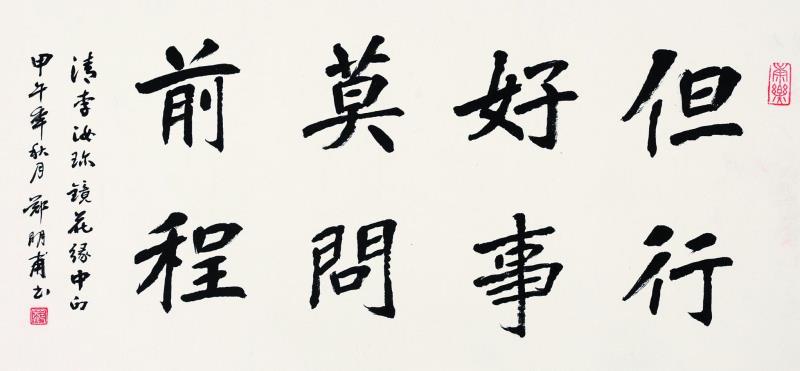 但行
好事
莫問
前程
清李汝珍鏡花緣中句
甲午年秋月鄭明甫书